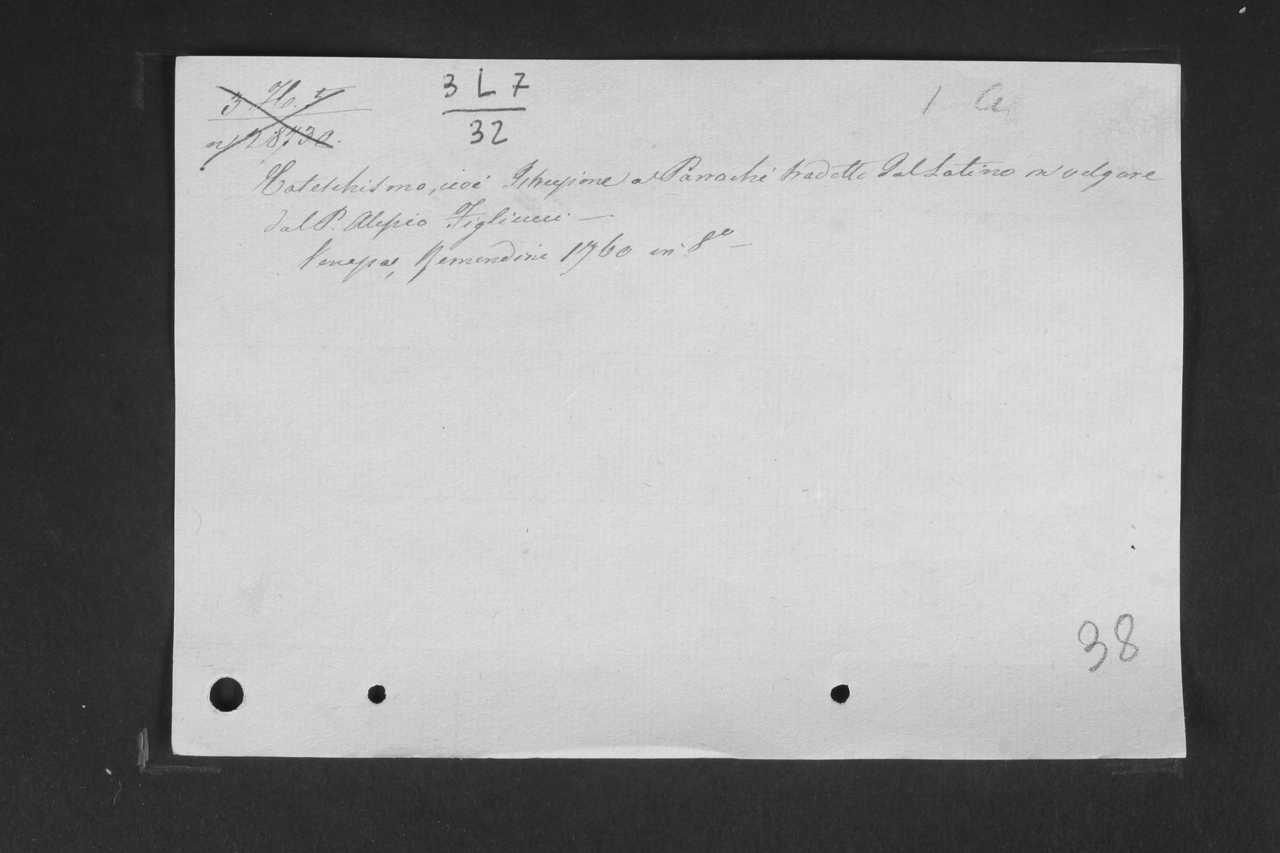 3. H. 7
n. 28730.
3 L 7
32
1 Ca
Catechismo, cioè Istruzione a' Parrochi tradotto dal Latino in volgare
dal P. Alessio Figliucci. —
Venezia, Remondini 1760 in 8º —
38